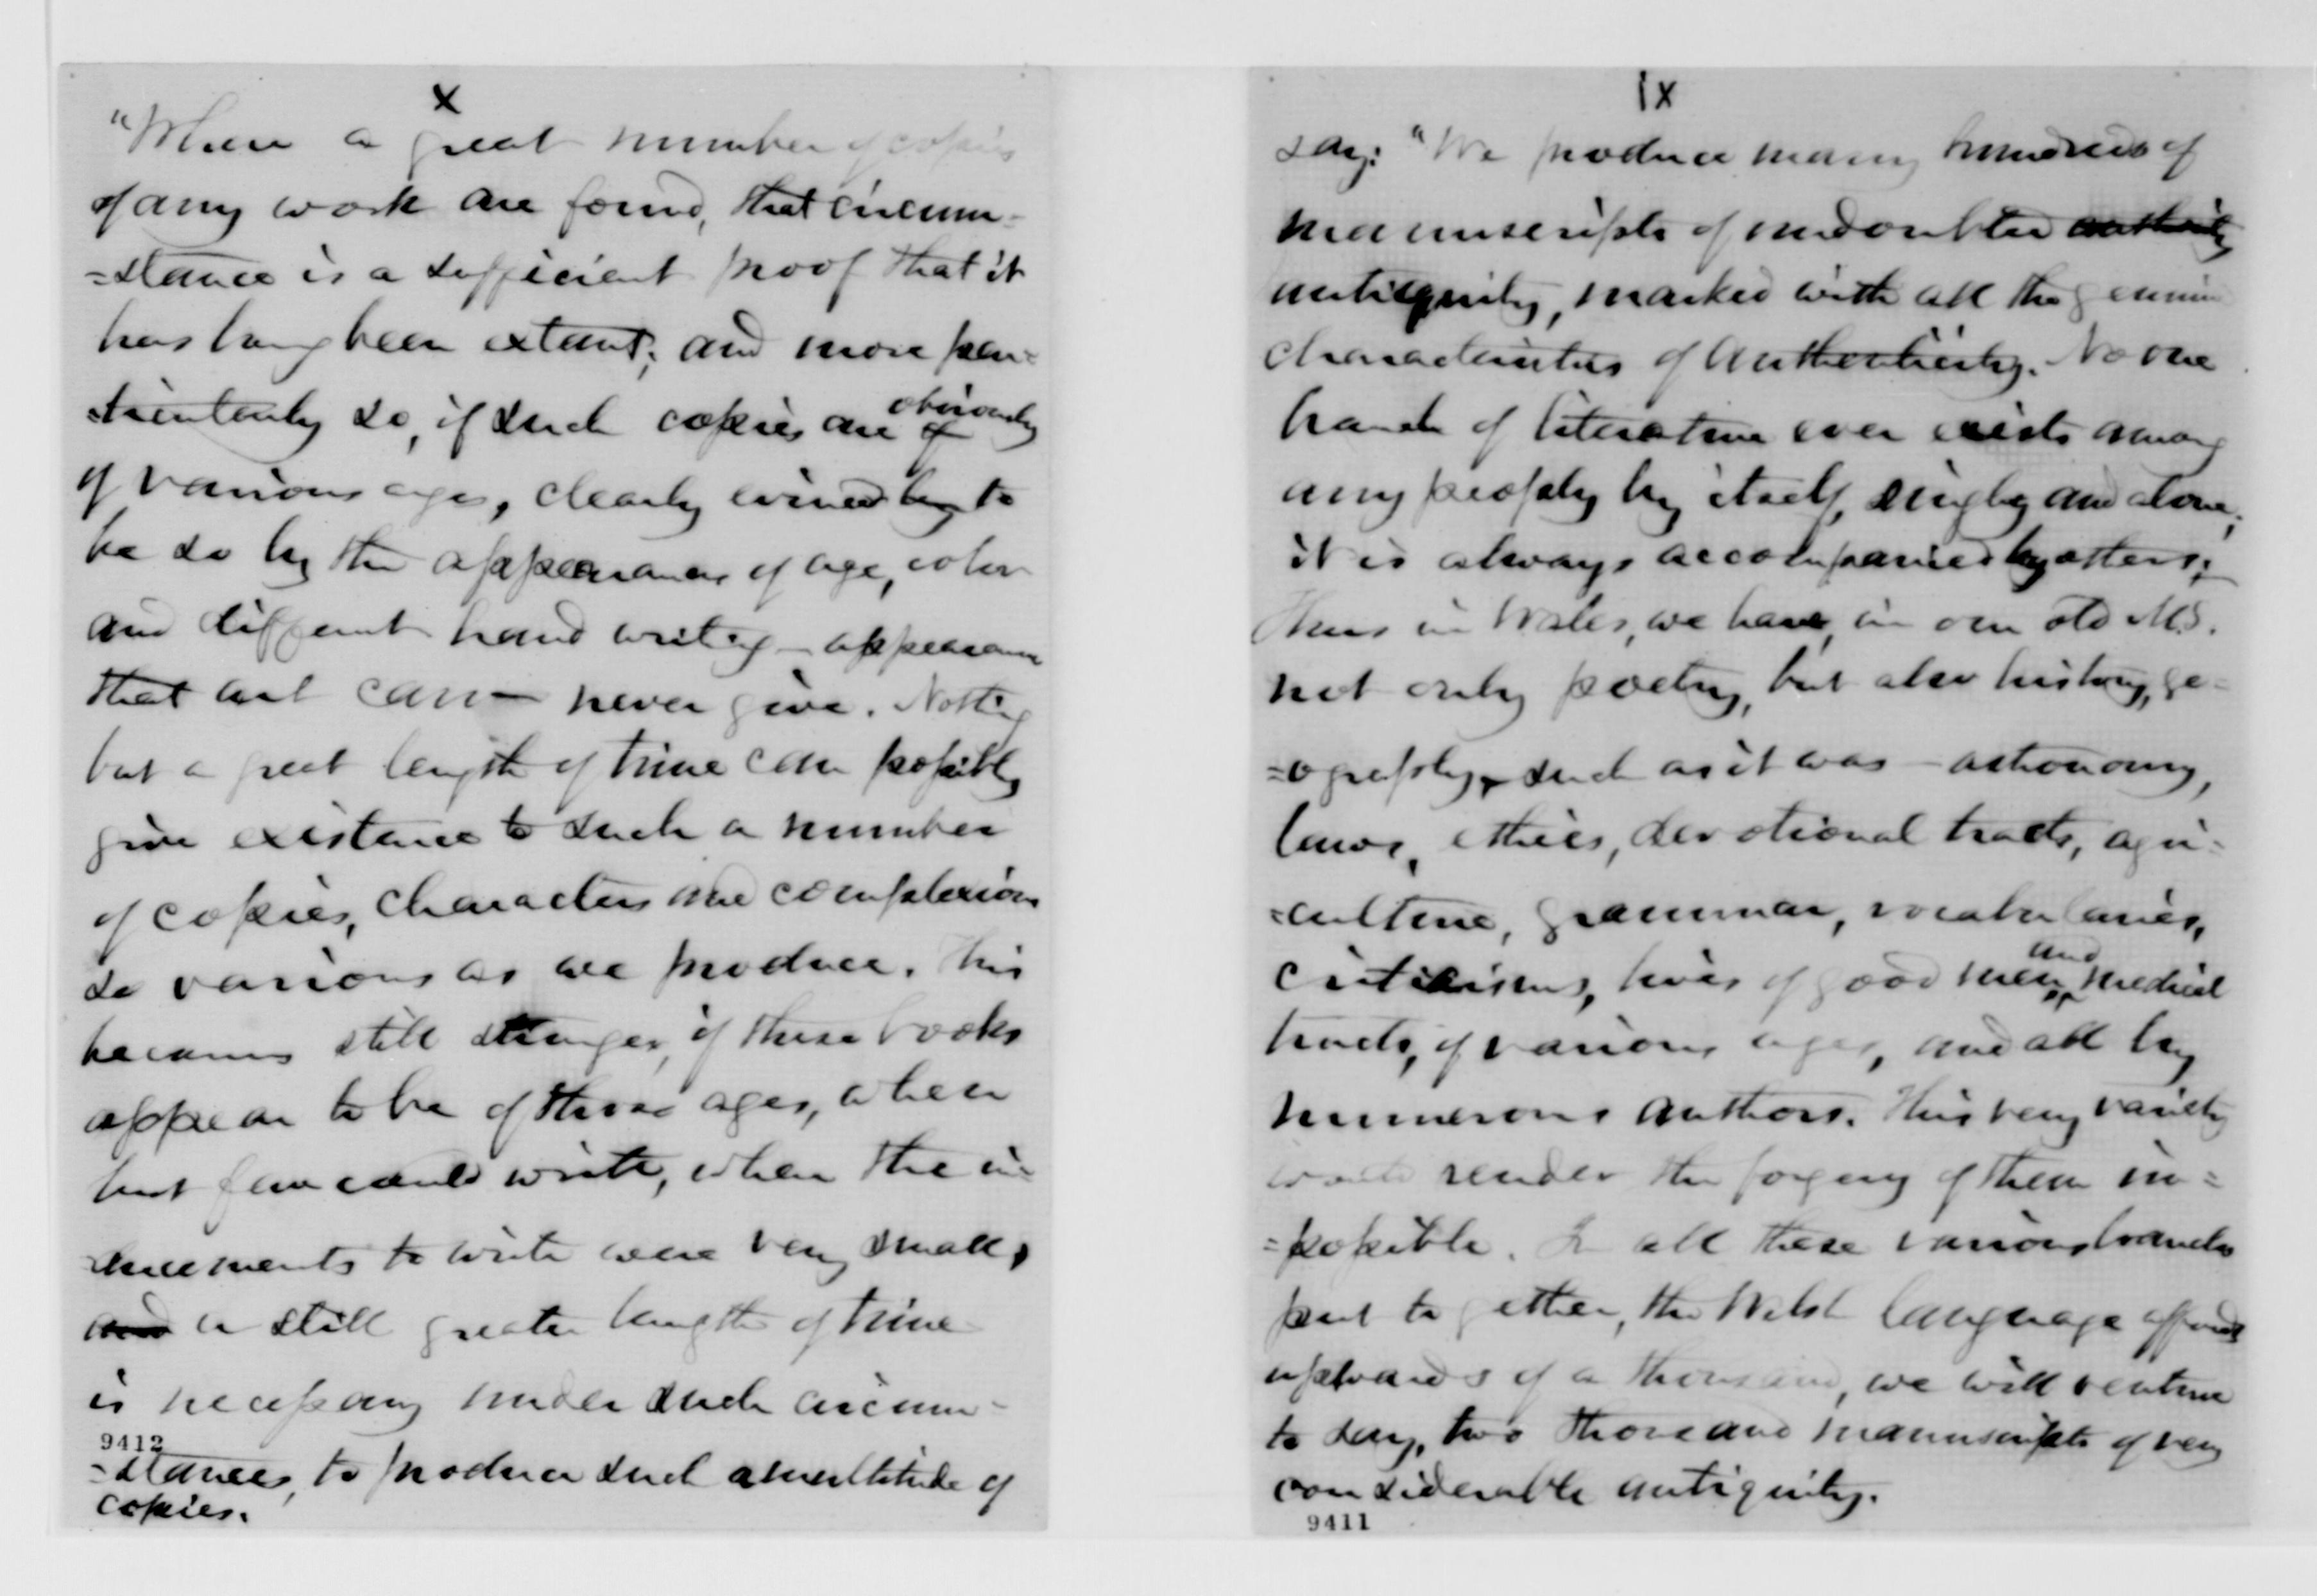 x
"When a great number of copies
of any work are found, that circum-
=stance is a sufficient proof that it
has long been extant; and more par=
ticularly so, if such copies are obviously
of various ages, clearly evinced to
be so by the appearance of age, color
and different hand writing - appearance
that art can never give. Nothing
but a great length of time can possibly
give existance to such a number
of copies, characters and complexions
so various as we produce. This
becomes still stronger, if these books
appear to be of those ages, when
but few could write, when the in=
ducements to write were very small,
and a still greater length of time
is necessary under such circum-
9412
=stances, to produce such a multitude of
copies.
ix
say: "We produce many hundreds of
manuscripts of undoubted
antiquity, marked with all the genuine
characteristics of authenticity. No one
branch of literature ever exists among
any people by itself, singly and alone;
it is always accompanied by others;
Thus in Wales, we have, in our old MS.
not only poetry, but also history, ge=
=ography, such as it was - astronomy,
laws, ethics, devotional tracts, agri=
=culture, grammar, vocabularies,
criticisms, lives of good men, and medical
tracts, of various ages, and all by
numerous authors. This very variety
would render the forgery of them im=
=possible. In all these various branches
put together, the Welsh language affords
upwards of a thousand, we will venture
to say, two thousand manuscripts of very
considerable antiquity.
9411